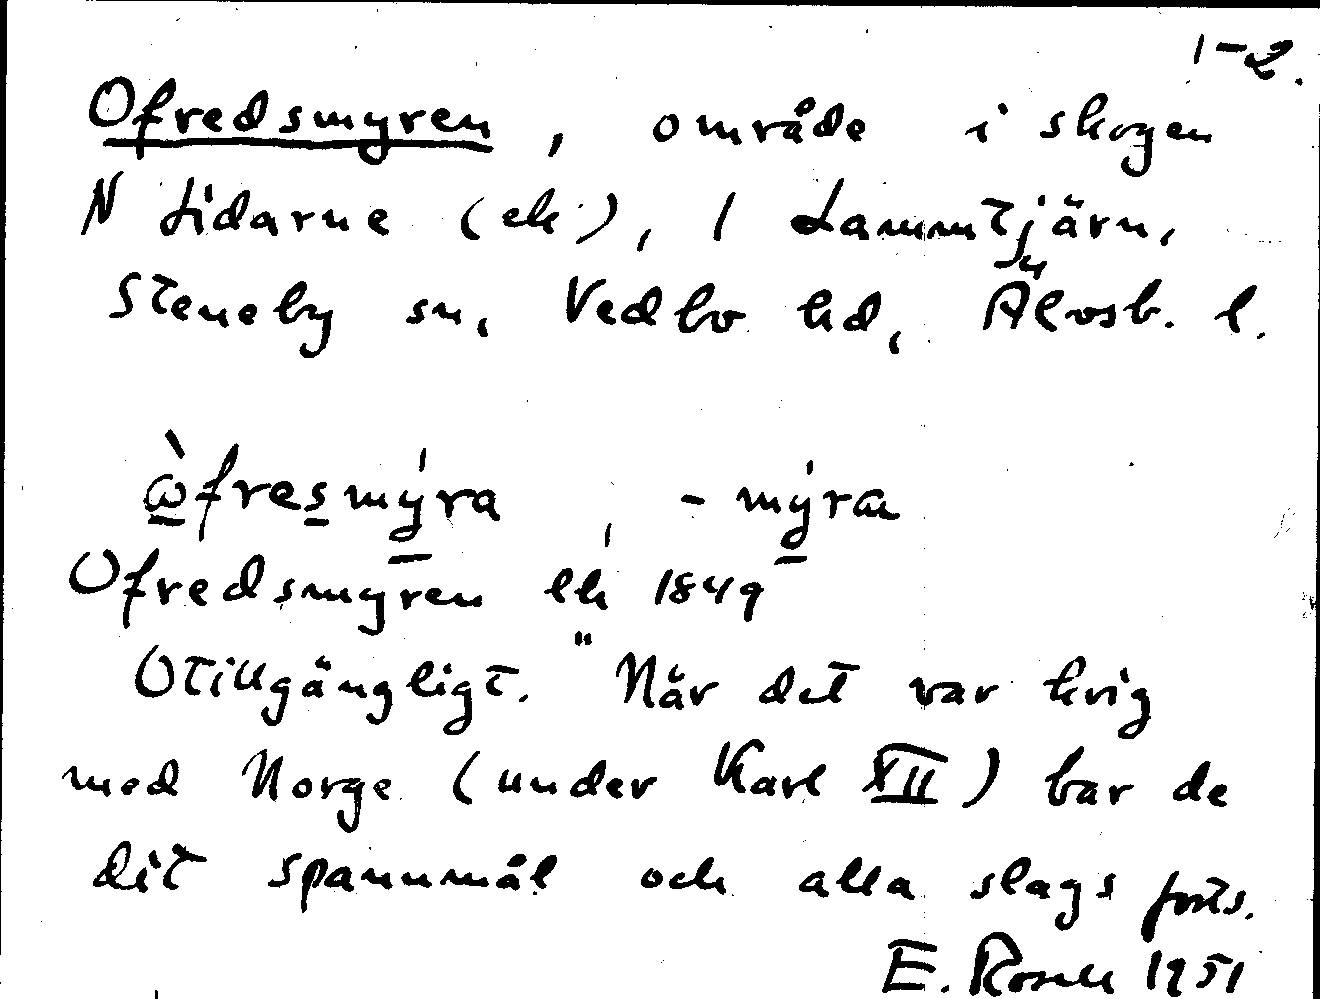 1-2.
Ofredsmyren, område i skogen
N Lidarne (ek), 1 Lammtjärn,
Steneby sn, Vedbo hd, Älvsb. l.
ὼfresmýra, -mýra
Ofredsmyren ek 1849
Otillgängligt. "När det var krig
med Norge (under Karl XII) bar de
dit spannmål och alla slags forts.
E. Rosell 1951